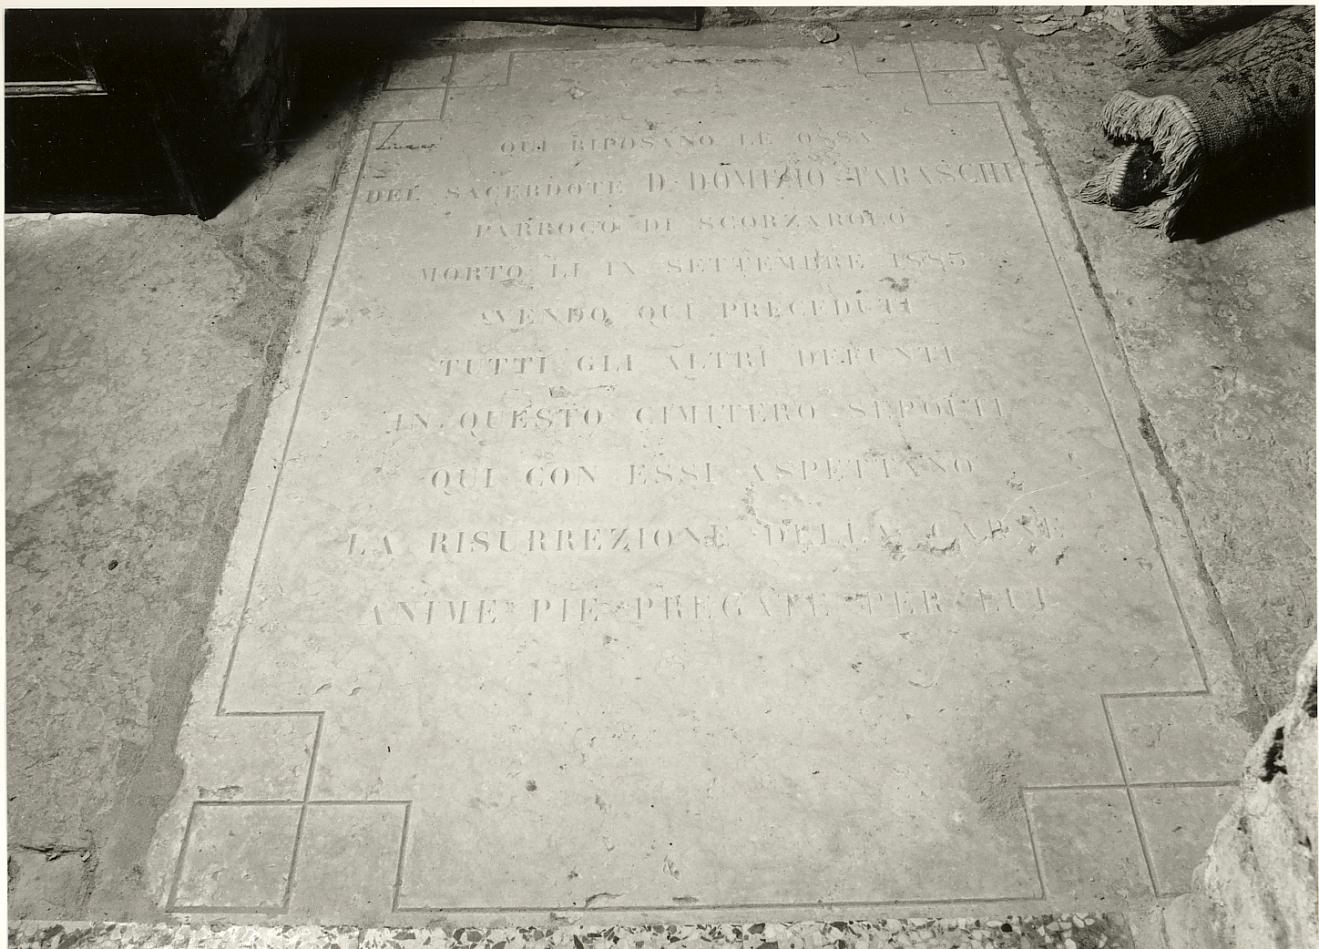 QUI RIPOSANO LE OSSA
DEL SACERDOTE D. DOMICIO TARASCHI
PARROCO DI SCORZAROLO
MORTO LI IX SETTEMBRE 1885
AVENDO QUI PRECEDUTI
TUTTI GLI ALTRI DEFUNTI
IN QUESTO CIMITERO SEPOLTI
QUI CON ESSI ASPETTANO
LA RISURREZIONE DELLA CARNE
ANIME PIE PREGATE PER LUI